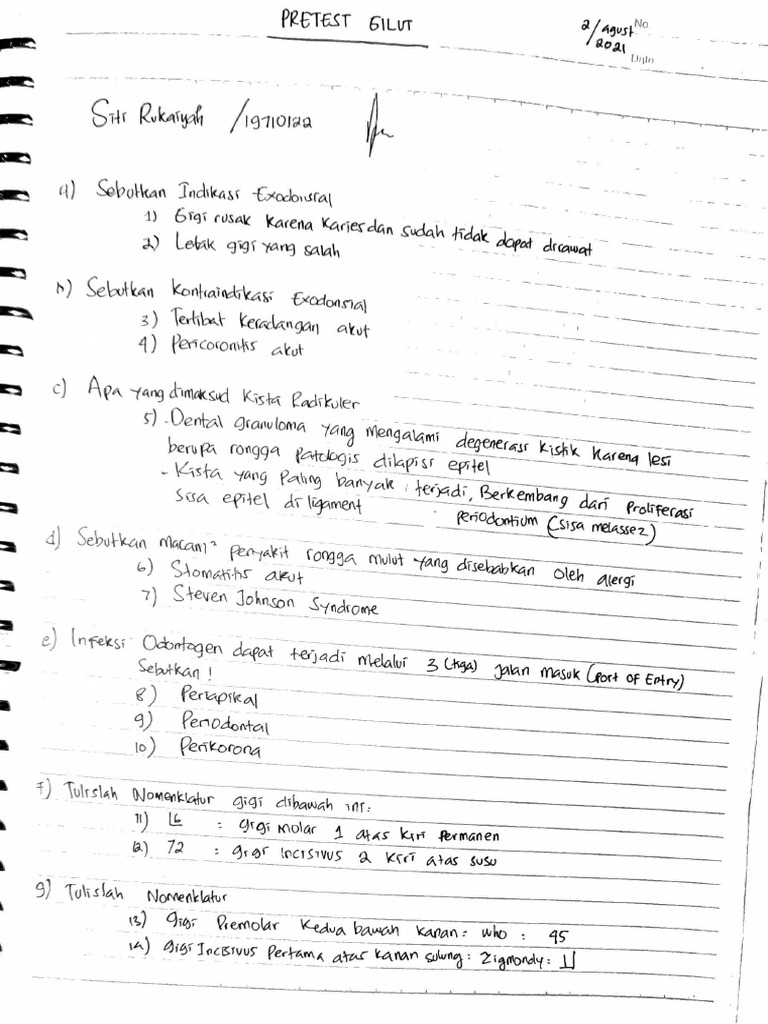 PRETEST GILUT
2/Agust No
2021
Date
Siti Rukaiyah /19710122
a) Sebutkan Indikasi Exodonsial
1) Gigi rusak karena karies dan sudah tidak dapat dirawat
2) Letak gigi yang salah
b) Sebutkan Kontraindikasi Exodonsial
3) Terlibat Keradangan akut
4) Pericoronitis akut
c) Apa yang dimaksud Kista Radikuler
5) - Dental granuloma yang mengalami degenerasi kistik karena lesi
berupa rongga patologis dilapisi epitel
- Kista yang paling banyak terjadi, Berkembang dari Proliferasi
sisa epitel di ligament periodontium (sisa melassez)
d) Sebutkan macam² penyakit rongga mulut yang disebabkan oleh alergi
6) Stomatitis akut
7) Steven Johnson Syndrome
e) Infeksi Odontogen dapat terjadi melalui 3 (tiga) jalan masuk (Port of Entry)
Sebutkan!
8) Periapikal
9) Periodontal
10) Perikorona
f) Tulislah Nomenklatur gigi dibawah ini:
11) |6 : gigi molar 1 atas kiri permanen
12) 72 : gigi incisivus 2 kiri atas susu
g) Tulislah Nomenklatur
13) gigi Premolar Kedua bawah kanan : WHO : 45
14) gigi Incisivus Pertama atas kanan sulung : Zigmondy : I|